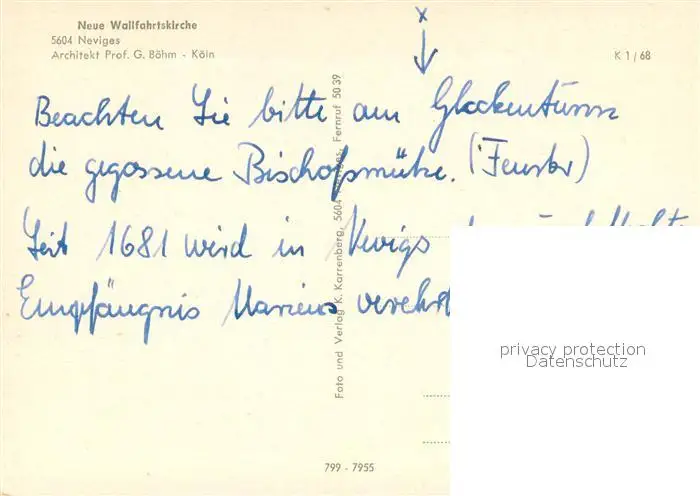 Neue Wallfahrtskirche
5604 Neviges
Architekt Prof. G. Böhm - Köln
K 1/68
x
Beachten Sie bitte am Glockenturm
die gegossene Bischofsmütze. (Fenster)
Seit 1681 wird in Neviges
Empfängnis Mariens verehrt
Foto und Verlag K. Karrenberg, 5604 Neviges, Fernruf 5039
799 - 7955
privacy protection
Datenschutz